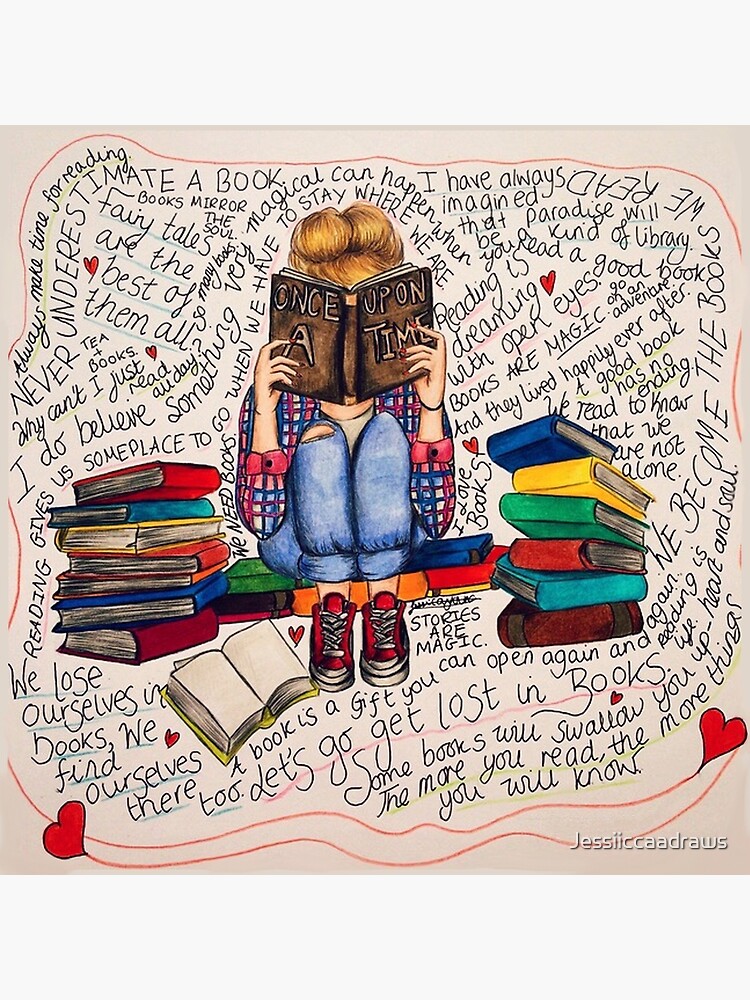 Always make time for reading.
NEVER UNDERESTIMATE A BOOK
BOOKS MIRROR
THE
SOUL.
Fairy tales
are the
best of
them all.
so many books.
Something very magical can happen when you read a good book
I do believe
WHEN WE HAVE TO STAY WHERE WE ARE
READING GIVES US SOMEPLACE TO GO
TEA
+
BOOKS.
Why can't I just
read
all day?
WE NEED BOOKS.
ONCE
A
UPON
TIME
I have always
imagined
that Paradise will
be a kind of library.
WE BECOME THE BOOKS
WE READ
Reading is
dreaming
with open eyes.
BOOKS ARE MAGIC.
go on
an
adventure.
And they lived happily ever after.
A good book
has no
ending.
We read to know
that we
are not
alone.
I Love
BOOKS!
STORIES
ARE
MAGIC.
Reading is
life.
We lose
ourselves in
books, We
find
ourselves
there too.
A book is a gift you can open again and again.
Let's go get lost in Books.
Some books will swallow you up - heart and soul.
The more you read, the more things
you will know.
Jessiiccaadraws